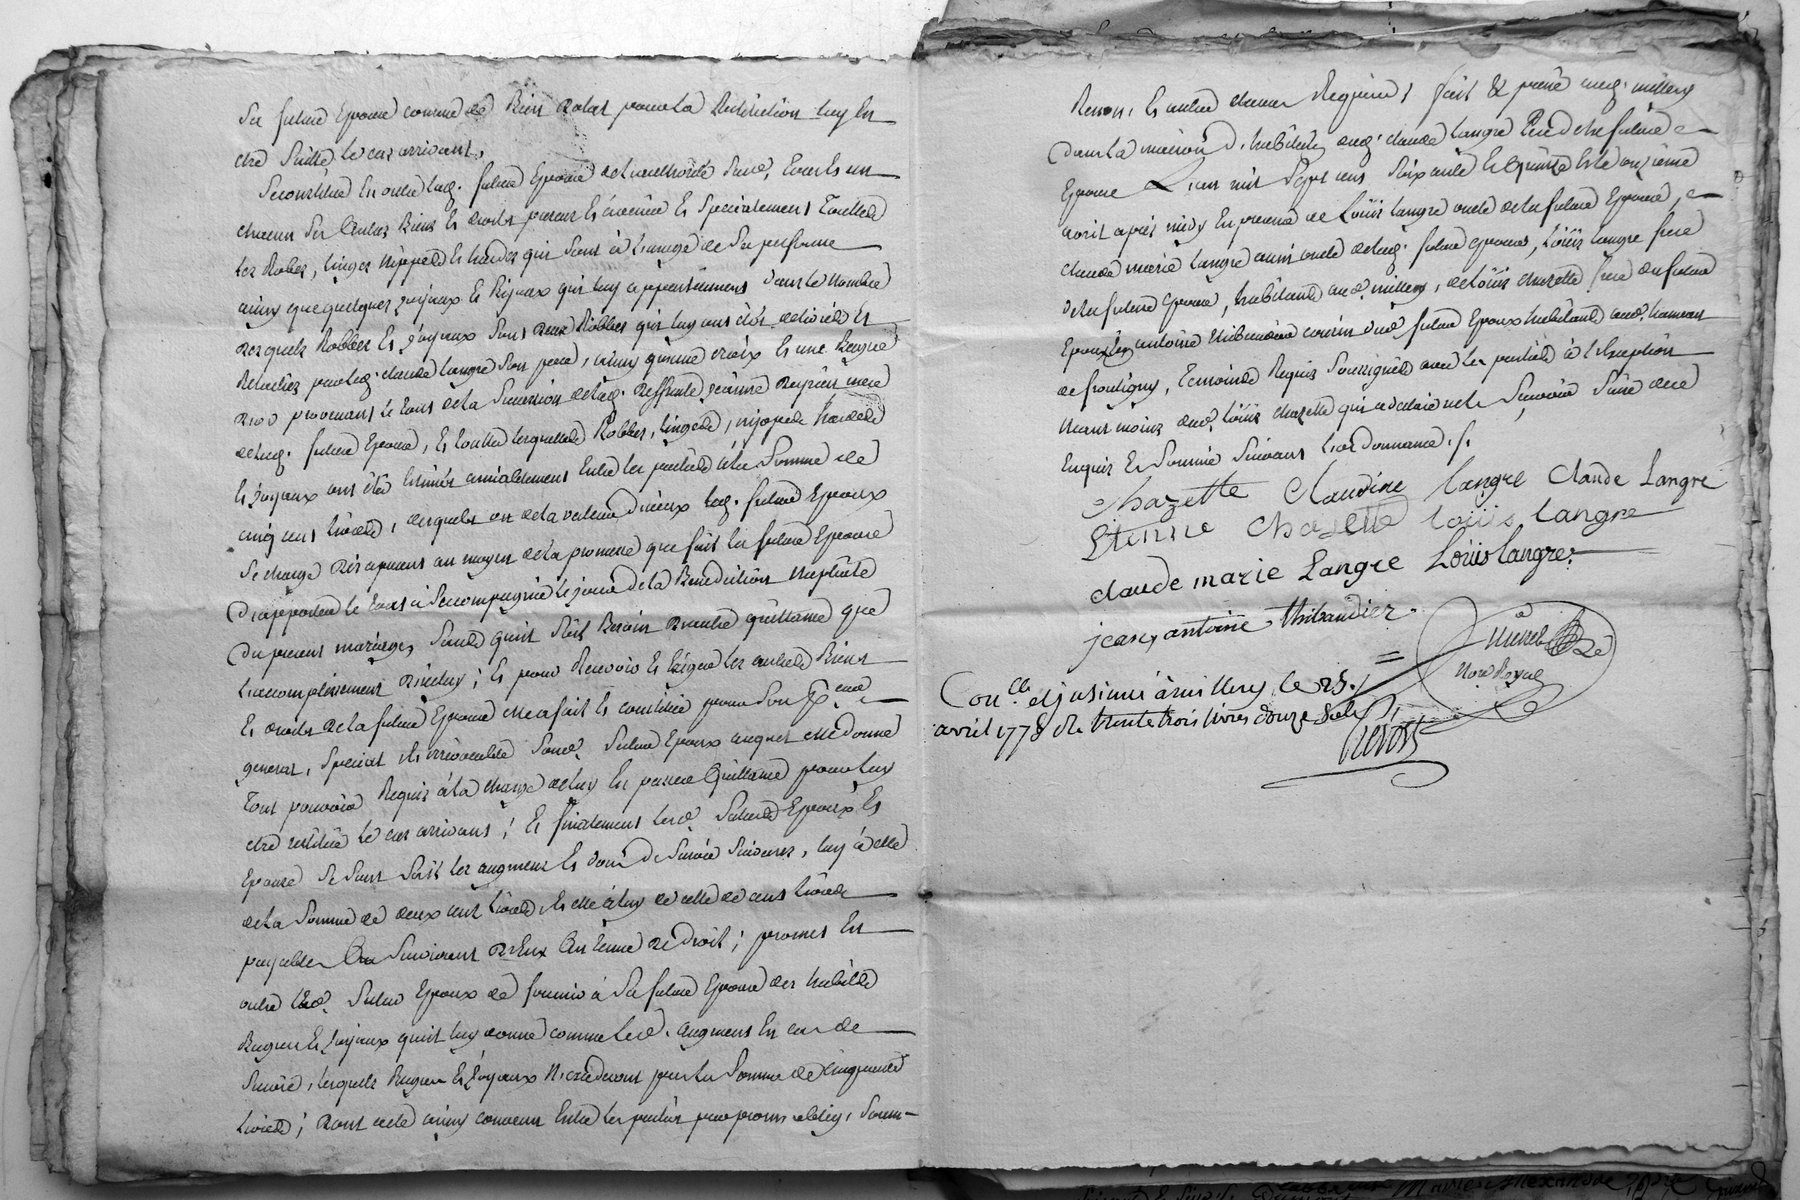 Sa future Epouse comme de Bien dotal pour la Restitution luy En
etre faitte le cas arrivant,
Se constitue En outre lad. future Epouse de l'authorité Susd. tous Es un
chacun Ses autres Biens Et droits presens Et avenir Et Specialement Touttes
les Robes, linges nippes Et hardes qui Sont à l'usage de Sa personne
ainsy que quelques joyaux Et Bijoux qui luy appartiennent dans le nombre
desquels Robbes Et joyaux Sont deux Robbes qui luy ont été delivrées Et
par led. claude Langre Son pere, ainsy qu'une croix Et une Bague
d'or provenant le tout de la Succession de lad. deffunte jeanne mere
de lad. future Epouse, Et touttes lesquelles Robbes, linges, nippes hardes
Et joyaux ont été Estimés amiablement Entre les parties à la Somme de
cinq cent livres, desquels ou de la valeur d'iceux led. futur Epoux
Se charge dès apresent au moyen de la promesse que fait la future Epouse
d'apporter le tout à Sa compagnie le jour de la Benediction nuptiale
du present mariage, Sans qu'il Soit Besoin d'autre quittance que
l'accomplissement d'icelluy; Et pour Recevoir Et Exiger les autres Biens
Et droits de la future Epouse elle a fait Et constitué pour Son
general, Special Et irrévocable Sond. futur Epoux auquel elle donne
Tout pouvoir Requis à la charge de luy En passer Quittance pour luy
etre restitué le cas arrivant; Et finalement lesd. futurs Epoux Et
Epouse Se Sont fait les augment Et don de Survie Suivants, luy à elle
de la Somme de deux cent livres Et elle à luy de celle de cent livres
payables Au Survivant d'Eux En terme de droit; promet En
outre led. futur Epoux de fournir à Sa future Epouse des habits
Bagues Et joyaux qu'il luy donne comme led. augment En cas de
Survie, lesquels Bagues Et joyaux n'excederont pas la Somme de Cinquante
livres; Dont acte ainsy convenu Entre les parties par promis oblig. Soum-
Renon. Et autres clauses Requises; fait Et passé aud. millery
dans la maison d'habitation dud. claude Langre Pere de la future
Epouse L'an mil Sept cent Soixante Et quinze Et le onzieme
avril apres midy En presence de Loüis Langre oncle de la future Epouse,
claude marie Langre aussi oncle de lad. future epouse, Loüis Langre frere
de la future Epouse, habitants aud. millery, de Loüis chazette frere du futur
Epoux Et jean antoine thibaudier cousin dud. futur Epoux habitants aud. hameau
de frontigny, Temoins Requis Soussignés avec les parties à l'Exception
neanmoins dud. Loüis chazette qui a declaré ne le Sçavoir faire de ce
Enquis Et Sommé Suivant l'ordonnance ./.
Chazette Claudine Langre Claude Langre
Etienne Chazette Loüis Langre
claude marie Langre Loüis Langre
jean antoine thibaudier
Nore Royal
Con.lle et insinué à millery le 25
avril 1775 Rs trente trois livres douze Sols